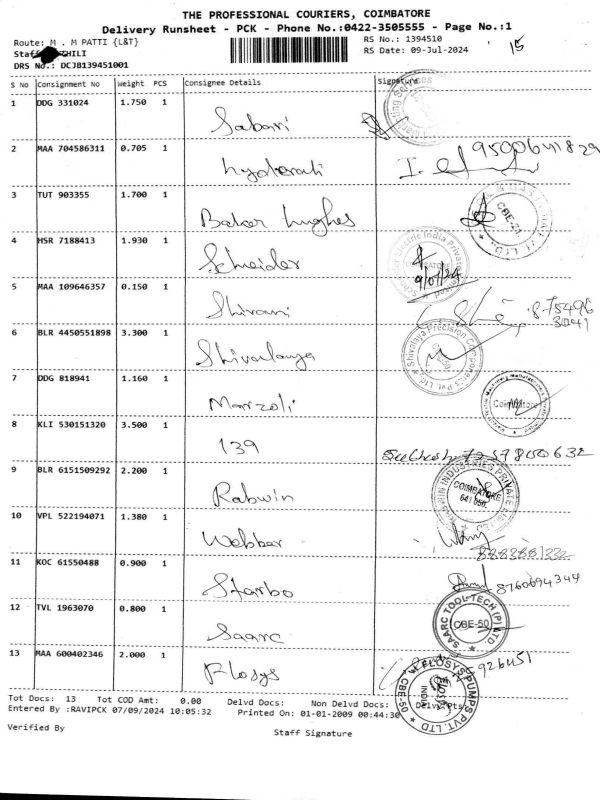 THE PROFESSIONAL COURIERS, COIMBATORE
Delivery Runsheet - PCK - Phone No.:0422-3505555 - Page No.:1
Route: M . M PATTI {L&T}
RS No.: 1394510
15
Staff
RS Date: 09-Jul-2024
DRS No.: DCJB139451001
S No Consignment No Weight PCS Consignee Details Signature
1 DDG 331024 1.750 1 Sabari
2 MAA 704586311 0.705 1 9500641829
3 TUT 903355 1.700 1 Baker hughes CBE-21
4 HSR 7188413 1.930 1 Schneider 9/07/24
5 MAA 109646357 0.150 1 Shivani 875496
3041
6 BLR 4450551898 3.300 1 Shivalaya Shivalaya Precision Components Pvt. Ltd.
7 DDG 818941 1.160 1 Marzoli Coimbatore
8 KLI 530151320 3.500 1 139
9 BLR 6151509292 2.200 1 Rabwin RABWIN INDUSTRIES PRIVATE LIMITED COIMBATORE
10 VPL 522194071 1.380 1 Webber
11 KOC 61550488 0.900 1 Starbo 8760694344
12 TVL 1963070 0.800 1 Saarc SAARC TOOL-TECH (P) LTD CBE-50
13 MAA 600402346 2.000 1 Flosys 926451 FLOSYS PUMPS PVT. LTD CBE-50 INDIA
Tot Docs: 13 Tot COD Amt: 0.00 Delvd Docs: Non Delvd Docs: Delvd Pts:
Entered By :RAVIPCK 07/09/2024 10:05:32 Printed On: 01-01-2009 00:44:30
Verified By
Staff Signature